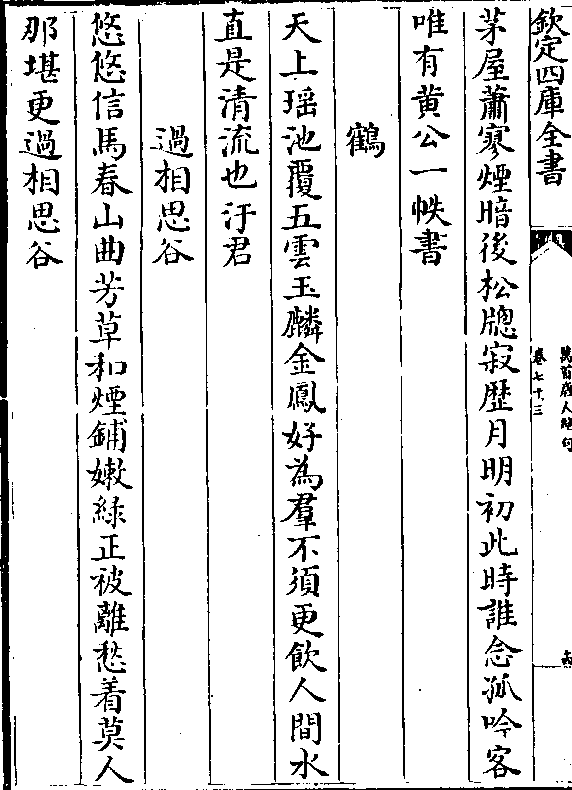 欽定四庫全書
萬首唐人絶句
卷七十三
茅屋蕭寥煙暗後松牕寂歴月明初此時誰念孤吟客
唯有黄公一帙書
鶴
天上瑶池覆五雲玉麟金鳳好為羣不須更飲人間水
直是清流也汙君
過相思谷
悠悠信馬春山曲芳草和煙鋪嫩綠正被離愁着莫人
那堪更過相思谷